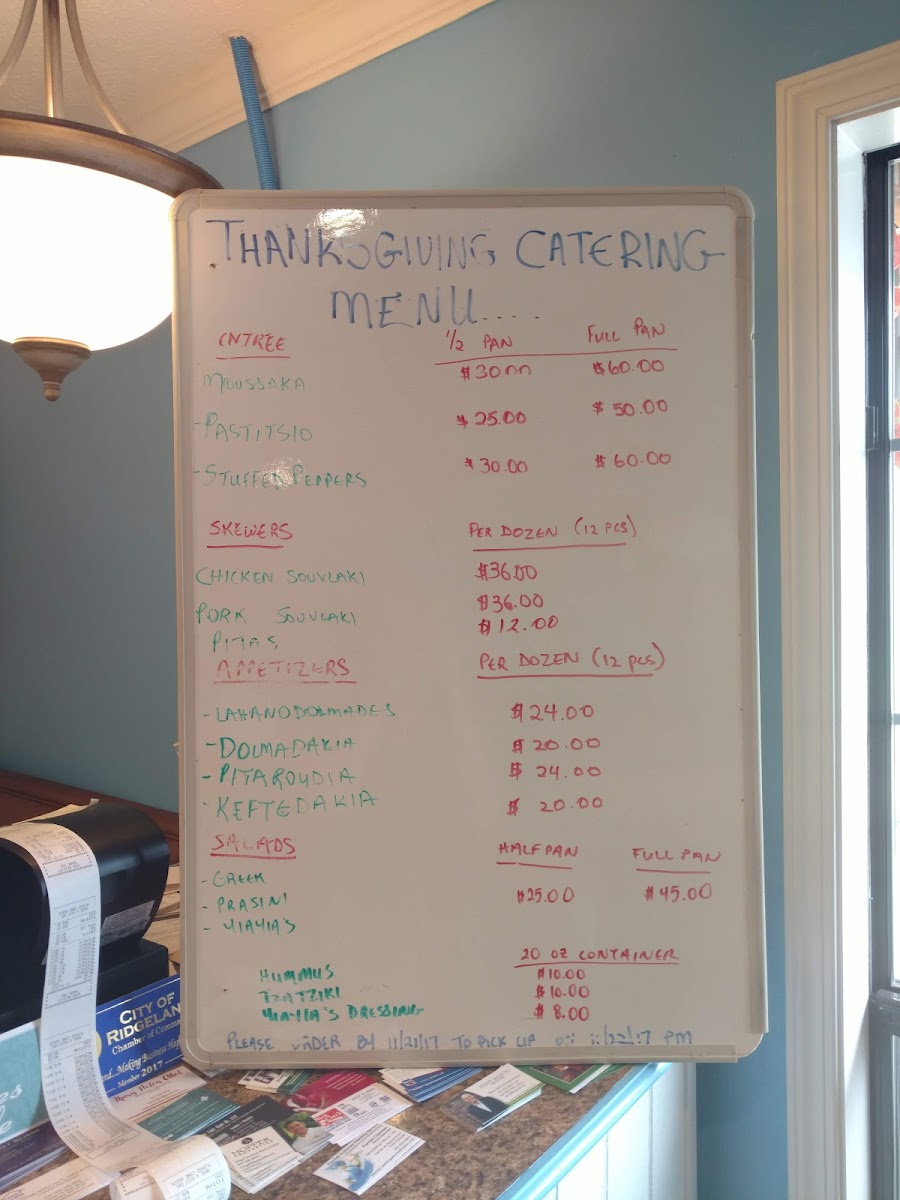 THANKSGIVING CATERING
MENU.....
ENTREE 1/2 PAN FULL PAN
MOUSSAKA $30.00 $60.00
-PASTITSIO $25.00 $50.00
-STUFFED PEPPERS $30.00 $60.00
SKEWERS PER DOZEN (12 PCS)
CHICKEN SOUVLAKI $36.00
PORK SOUVLAKI $36.00
PITAS $12.00
APPETIZERS PER DOZEN (12 PCS)
-LAHANODOLMADES $24.00
-DOLMADAKIA $20.00
-PITAROUDIA $24.00
-KEFTEDAKIA $20.00
SALADS HALF PAN FULL PAN
-GREEK
-PRASINI $25.00 $45.00
-YIAYIA'S
20 OZ CONTAINER
HUMMUS $10.00
TZATZIKI $10.00
YIAYIA'S DRESSING $8.00
PLEASE ORDER BY 11/21/17 TO PICK UP ON 11/22/17 PM
CITY OF
RIDGELAND
Chamber of Commerce
Making Business
Member 2017